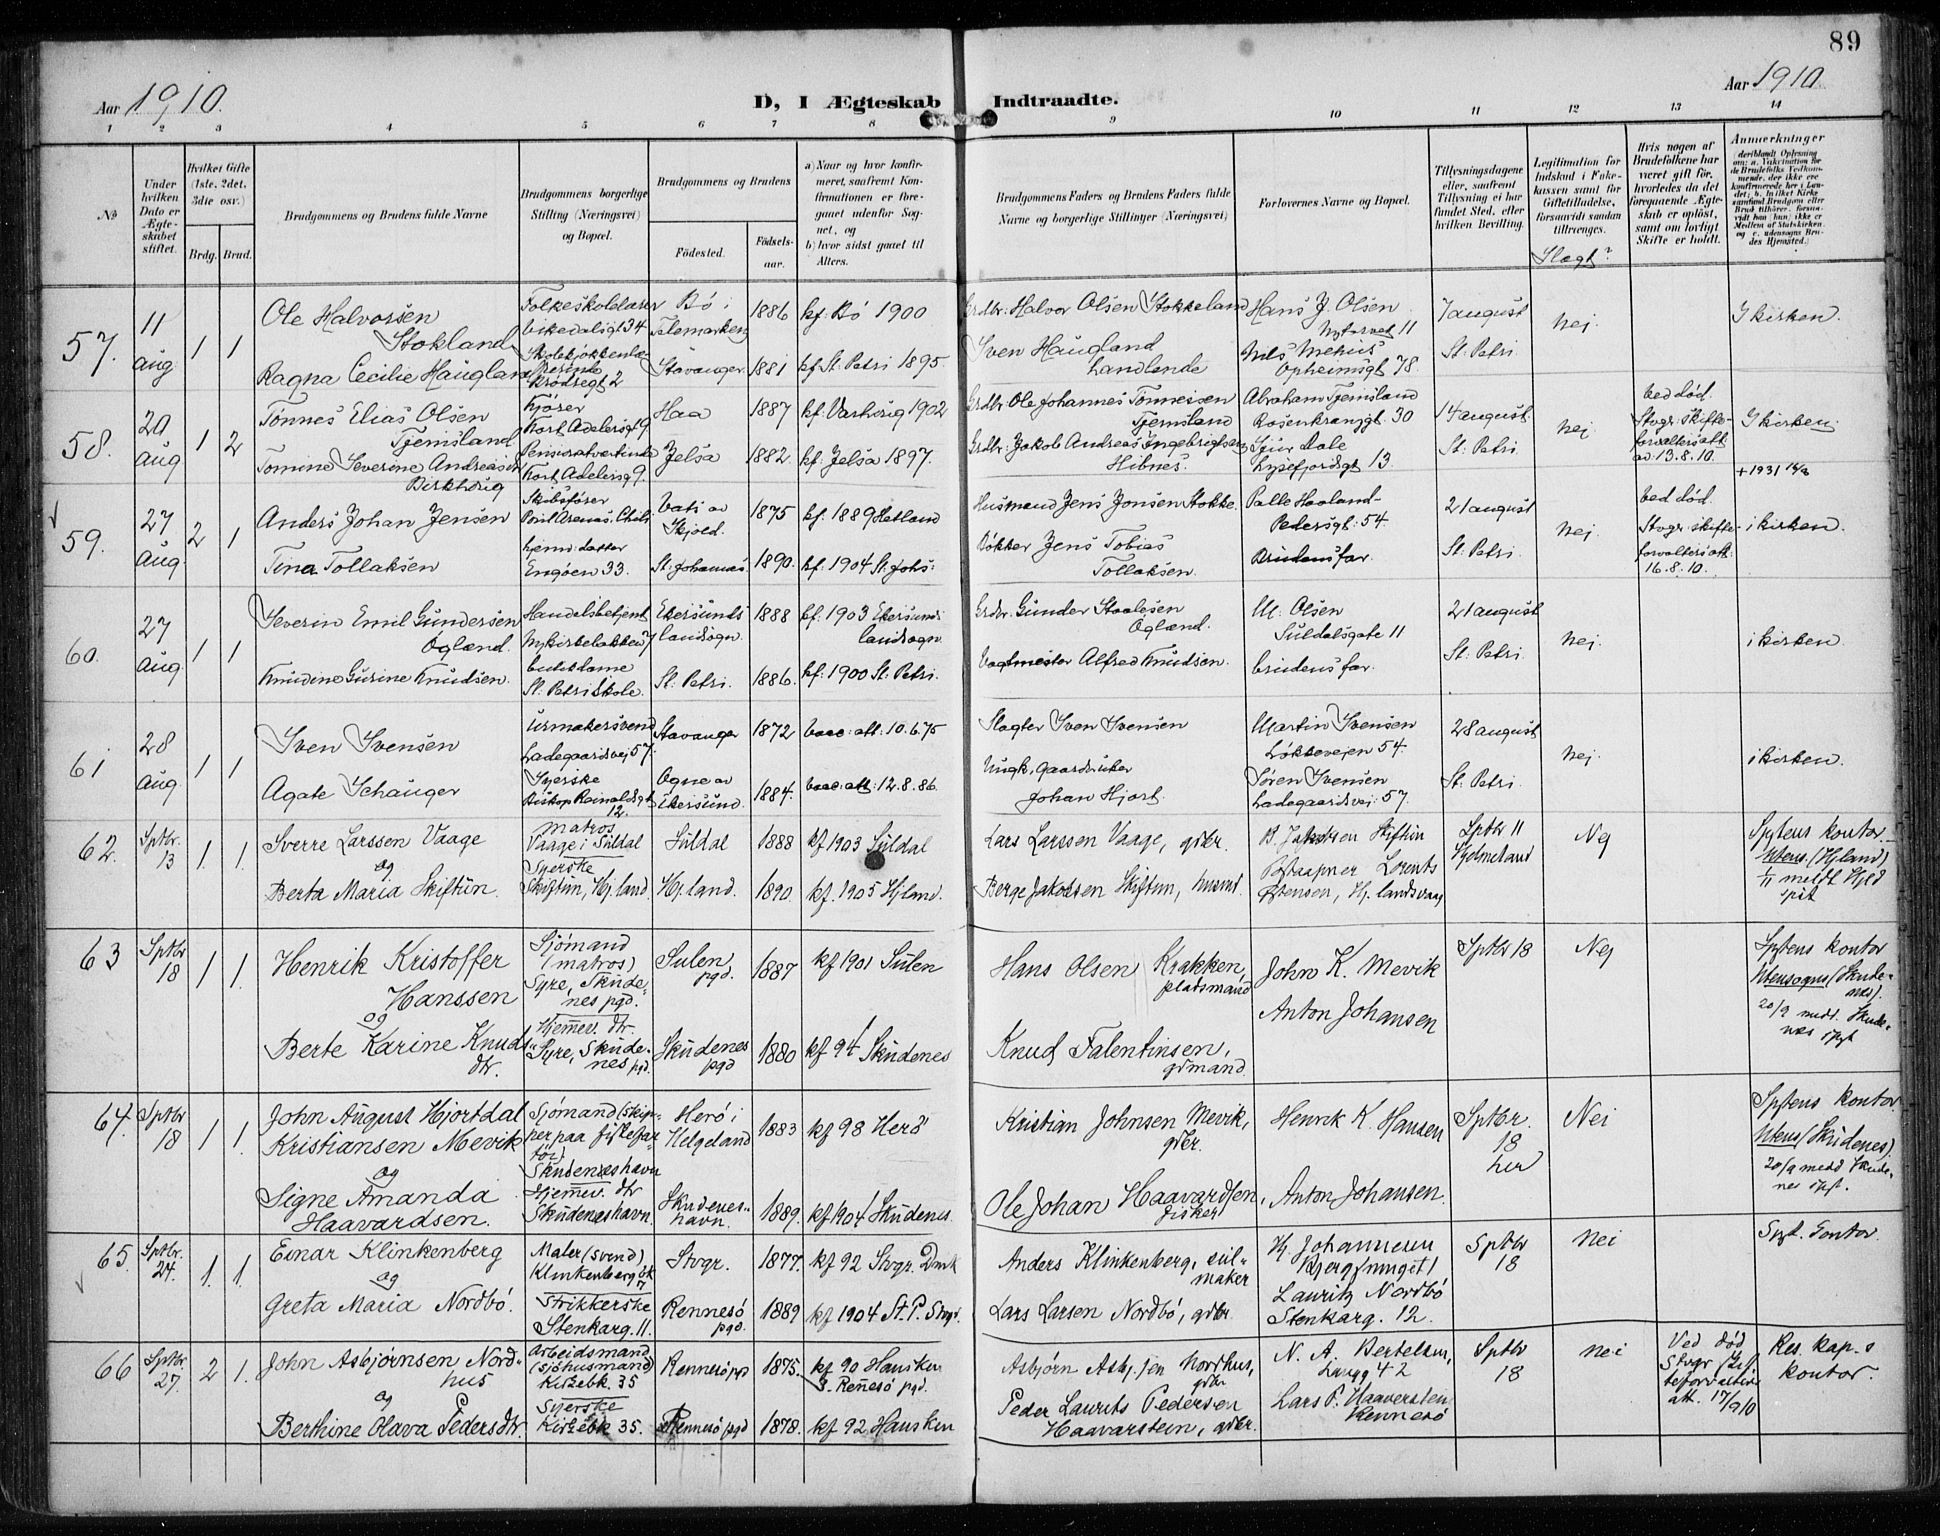 89
Aar 1910.
D, I Ægteskab Indtraadte.
Aar 1910.
1 2 3 4 5 6 7 8 9 10 11 12 13 14
№
Under hvilken Dato er Ægteskabet stiftet.
Hvilket Gifte (1ste, 2det, 3die osv.)
Brdg. Brud.
Brudgommens og Brudens fulde Navne
Brudgommens borgerlige Stilling (Næringsvei) og Bopæl.
Brudgommens og Brudens
Födested. Födselsaar.
a) Naar og hvor konfirmeret, saafremt Konfirmationen er foregaaet udenfor Sognet, og
b) hvor sidst gaaet til Alters.
Brudgommens Faders og Brudens Faders fulde Navne og borgerlige Stillinger (Næringsvei)
Forlovernes Navne og Bopæl.
Tillysningsdagene eller, saafremt Tillysning ei har fundet Sted, efter hvilken Bevilling.
Legitimation for Indskud i Enkekassen samt for Giftetilladelse, forsaavidt saadan tiltrænges.
Slægt?
Hvis nogen af Brudefolkene har været gift för, hvorledes da det foregaaende Ægteskab er oplöst, samt om lovligt Skifte er holdt.
Anmærkninger
57. 11 aug 1 1
Ole Halvorsen Stokland
Folkeskolelærer Birkedalsgt 34
Bö i Telemarken 1886 kf. Bö 1900
Grdbr. Halvor Olsen Stokkeland
Hans J. Olsen Nytorvet 11
7 august St. Petri
nej.
I kirken.
Ragna Cecilie Haugland
Stavanger 1881 kf. St. Petri 1895
Sven Haugland
Nils Mehus Opheimsgt 78.
58. 20 aug 1 2
Tönnes Elias Olsen Tjemsland
Kort Adelersgt 9
Haa 1887 kf. Varhoug 1902
Grdbr Ole Johannes Tönnesen Tjemsland
Abraham Tjemsland Rosenkransgt. 30
14 august St. Petri
nej
ved död. Stvgr. skifteforvalters att. av. 13.8.10.
I kirken.
Tomine Severine Andreasen Birkhoug
Kort Adelersg 9.
Jelsa 1882. kf. Jelsa 1897.
Grdbr. Jakob Andreas Ingebrigtsen Hibnes.
Sjur Dale Lysefjordsgt 13.
+ 1931
59. 27 aug 2 1
Anders Johan Jensen
Skibsförer
Vats av Skjold. 1875 kf. 1889 Hetland
Husmand Jens Jonsen Stokke.
Palle Haaland Pedersgt. 54.
21 august St. Petri.
nej.
ved död. Stvgr. skifteforvalters att. 16.8.10.
i kirken.
Tina Tollaksen
hjemv. datter Engöen 33.
St. Johannes 1890. kf. 1904 St. Johs.
Bökker Jens Tobias Tollaksen.
Brudens far.
60. 27 aug 1 1
Severin Emil Gundersen Ögland.
Handelsbetjent Nykirkebakken 7
Ekersunds landsogn. 1888 kf. 1903 Ekersunds landsogn.
Grdbr. Gunder Staalesen Ogland.
M. Olsen Suldalsgate 11
21 august St. Petri.
nej.
i kirken.
Knudine Gurine Knudsen.
St. Petri skole.
St. Petri. 1886. kf. 1900 St. Petri.
Vagtmester Alfred Knudsen.
brudens far.
61 28 aug. 1 1
Sven Svensen
Urmakersvend Ladegaardsvej 57.
Stavanger 1872 vacc. att. 10.6.75
Slagter Sven Svensen
Martin Svensen Lökkeveien 54.
28 august St. Petri.
nej.
i kirken.
Agate Schanger
Syerske Biskop Reinaldsgt 12.
Ogne av Ekersund. 1884. vacc. att. 12.8.86.
Ungk., gaardbruker Johan Hjort.
Sören Svensen Ladegaardsvej. 57.
62. Sptbr. 13 1. 1.
Sverre Larssen Vaage
og
Matros Vaage i Suldal
Suldal 1888 kf 1903 Suldal
Lars Larssen Vaage, gbr.
B. Jakobsen Skiftun
Sptbr 11 Hjelmeland
Nej
Sptens kontor.
Utens. (Hjland)
Berta Maria Skiftun.
Syerske Skiftun, Hj.land.
Hj.land. 1890. kf. 1905 Hjland.
Berge Jakobsen Skiftun, husmd.
Postaapner Lorents Östensen, Hj.landsvaag
63 Sptbr 18 1 1.
Henrik Kristoffer Hanssen
og
Sjömand (matros) Syre, Skudenes pgd.
Sulen pgd. 1887 kf 1901 Sulen
Hans Olsen Krakken, pladsmand
John K. Mevik
Sptbr 18
Nej
Sptens kontor
Utensogns (Skudenes).
20/9 medd. Skudenes spgt
Berte Karine Knudsdtr.
Hjemmev. dtr. Syre, Skudenes pgd.
Skudenes pgd 1880 kf 94 Skudenes
Knud Falentinsen, grmand.
Anton Johansen
64. Sptbr 18 1 1.
John August Hjortdal Kristiansen Mevik
og
Sjömand (skipper paa fiskefartöi) Skudeneshavn
Herö i Helgeland 1883 kf 98 Herö
Kristian Johnsen Mevik, gbr.
Henrik K. Hansen
Sptbr. 18 her
Nei
Sptens kontor
Utens (Skudenes).
20/9 medd Skudenes spgt.
Signe Amanda Haavardsen.
Hjemmev. dtr Skudeneshavn.
Skudeneshavn. 1889. kf 1904 Skudenes.
Ole Johan Haavardsen, fisker
Anton Johansen.
65. Sptbr. 24. 1. 1.
Einar Klinkenberg
og
Maler (svend) Klinkenberg bk 7
Stvgr. 1877. kf 92 Stvgr. Dmk
Anders Klinkenberg, seilmaker
Hj. Johannesen
Sptbr 18
Nei
Spt. kontor.
Greta Maria Nordbö.
Strikkerske Stenkarg. 11.
Rennesö pgd. 1889 kf 1904 St. P. Stvgr.
Lars Larsen Nordbö, gbr.
Lauritz Nordbö Stenkarg. 12.
66 Sptbr. 27. 2 1.
John Asbjørnsen Nordhus
og
Arbeidsmand (sjöhusmand) Kirkebk. 35
Rennesö pgd 1875. kf 90 Hausken Rennesö pgd.
Asbjørn Asbj.sen Nordhus, gbr
N. A. Bertelsen, Langg. 42
Sptbr 18
nei
Ved död Stvgr skifteforvalters att. 17/9 10
Res. kap.s kontor.
Berthine Olava Pedersdtr.
Syerske Kirkebk 35.
Rennesö pgd 1878. kf 92 Hausken
Peder Laurits Pedersen Haavarstein, gdbr.
Lars P. Haaverstein, Rennesö